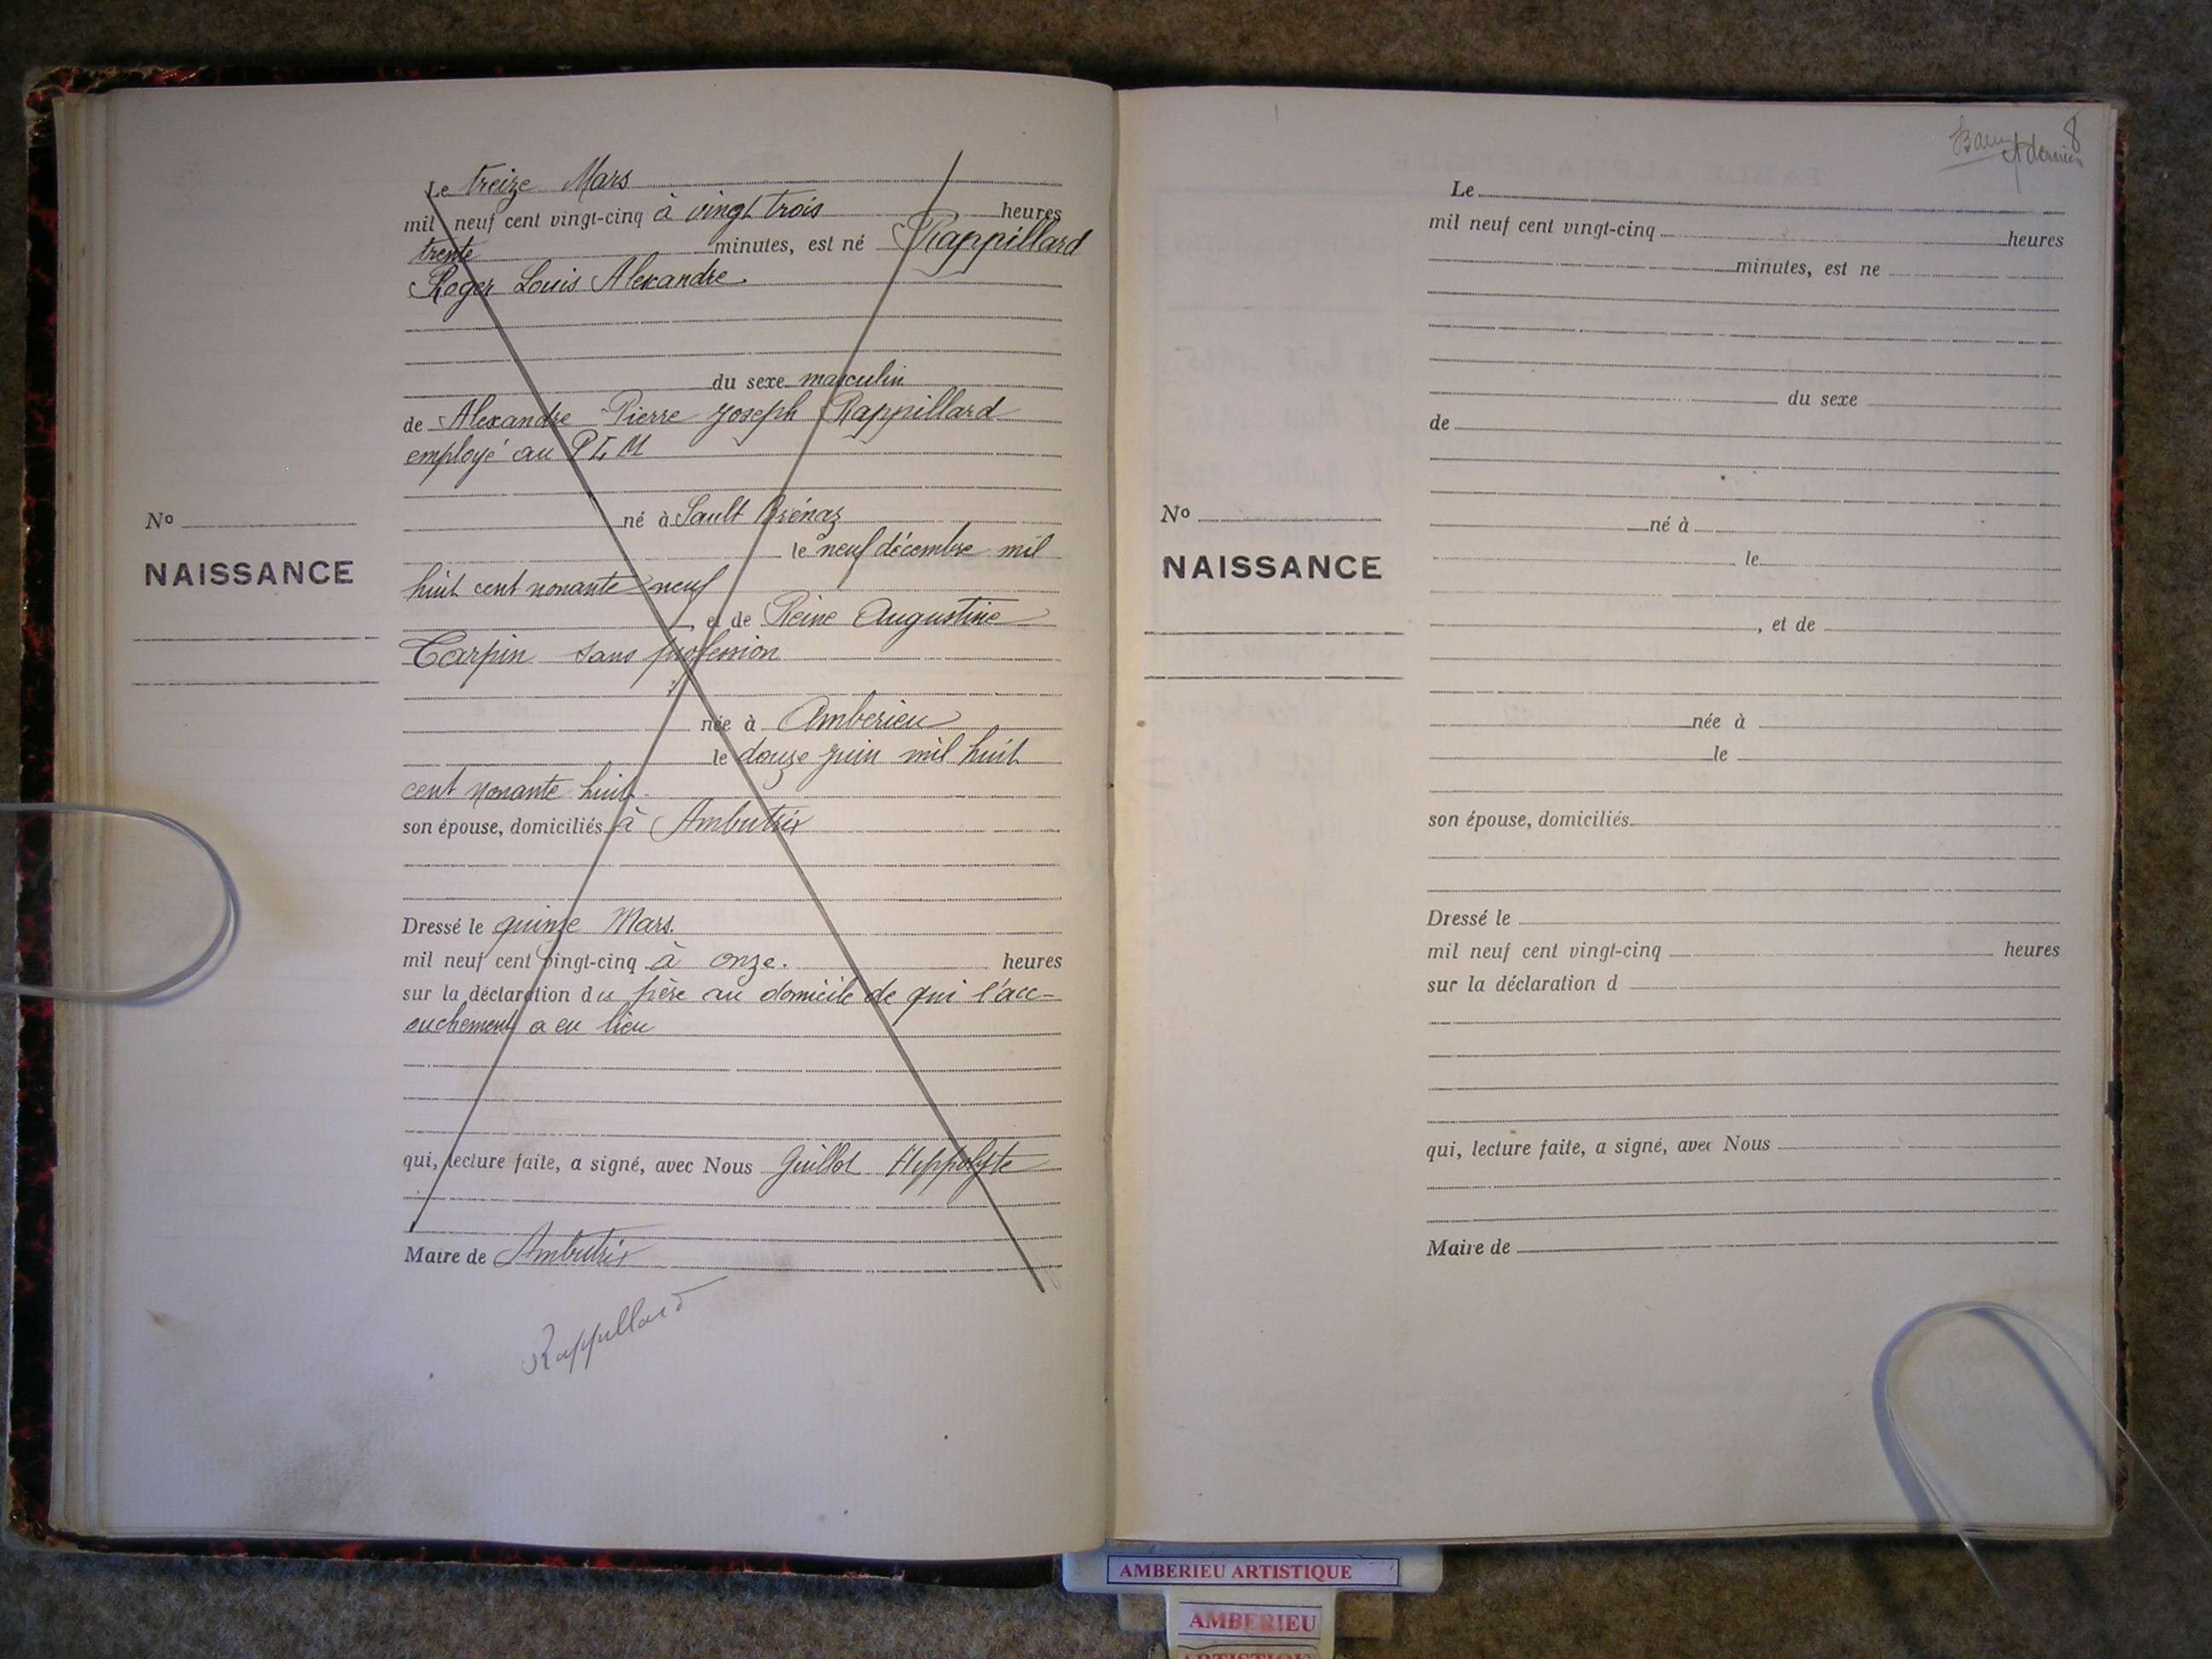 Le treize Mars
mil neuf cent vingt-cinq à vingt trois heures
trente minutes, est né Rappillard
Roger Louis Alexandre
du sexe masculin
de Alexandre Pierre Joseph Rappillard
employé au PLM
né à Sault Brénaz
le neuf décembre mil
huit cent nonante neuf
, et de Reine Augustine
Carpin sans profession
née à Amberieu
le douze juin mil huit
cent nonante huit
son épouse, domiciliés à Ambutrix
Dressé le quinze Mars.
mil neuf cent vingt-cinq à onze. heures
sur la déclaration du père au domicile de qui l'acc-
ouchement a eu lieu
qui, lecture faite, a signé, avec Nous Guillot Hippolyte
Maire de Ambutrix
Rappillard
No
NAISSANCE
8
et dernier
Le
mil neuf cent vingt-cinq heures
minutes, est ne
du sexe
de
né à
le
, et de
née à
le
son épouse, domiciliés
Dressé le
mil neuf cent vingt-cinq heures
sur la déclaration d
qui, lecture faite, a signé, avec Nous
Maire de
No
NAISSANCE
AMBERIEU ARTISTIQUE
AMBERIEU
ARTISTIQUE